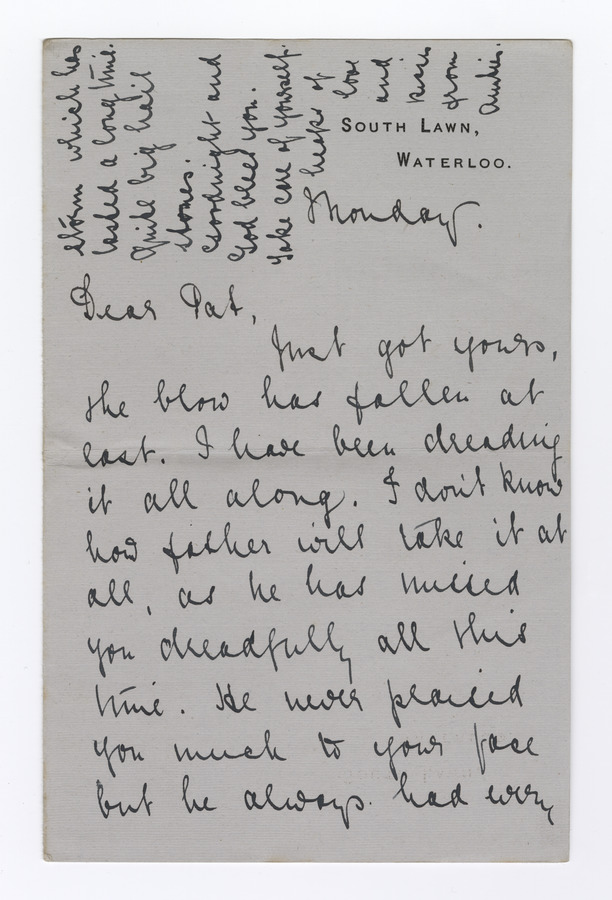 SOUTH LAWN,
WATERLOO.
Monday.
Dear Pat,
Just got yours,
the blow has fallen at
last. I have been dreading
it all along. I don't know
how father will take it at
all, as he has missed
you dreadfully all this
time. He never praised
you much to your face
but he always had every
storm which has
lasted a long time.
Quite big hail
stones.
Goodnight and
God bless you.
Take care of yourself.
heaps of
love
and
kisses
from
Auntie.